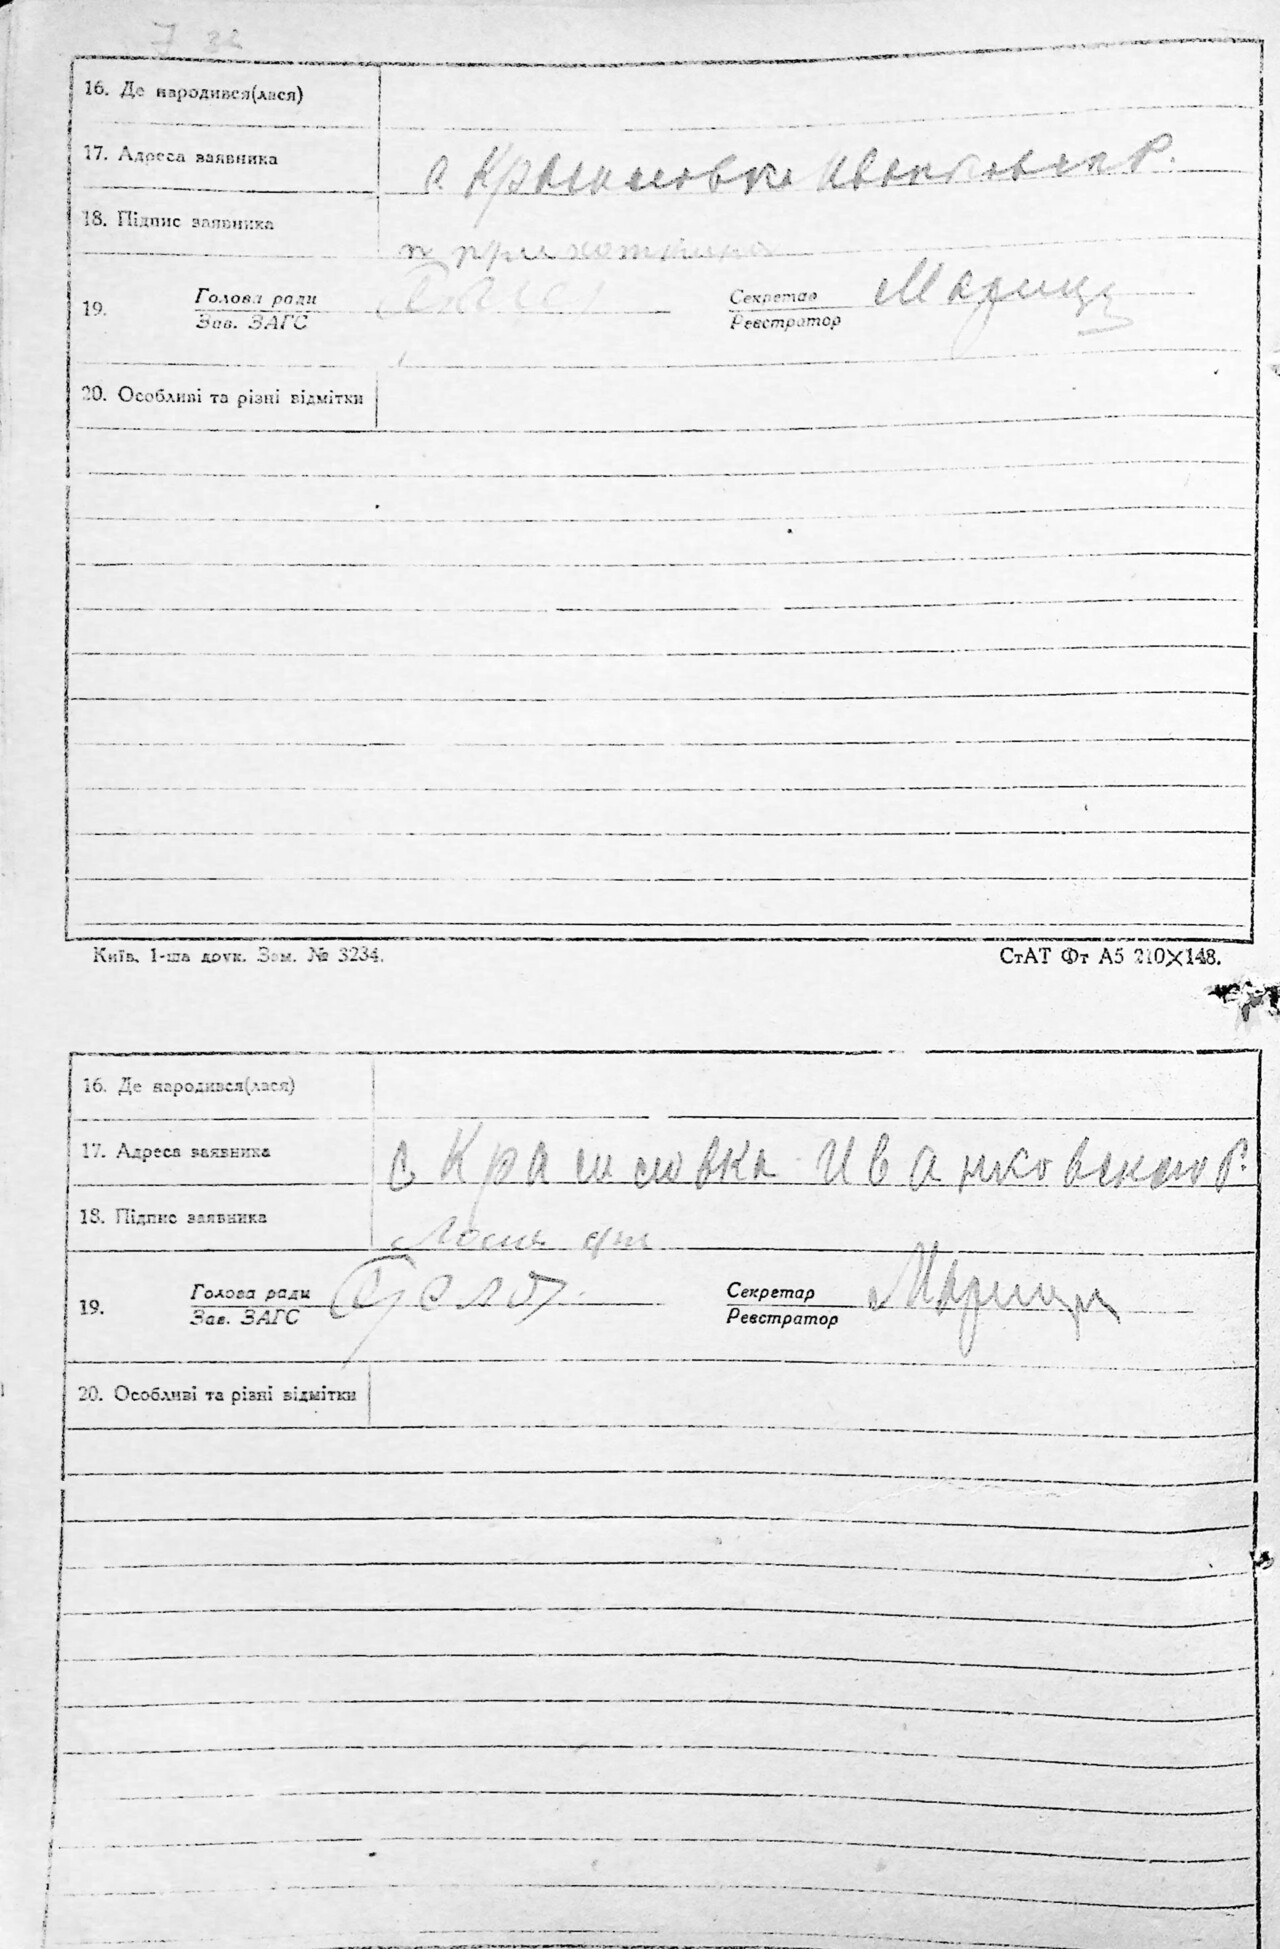 16. Де народився(лася)
17. Адреса заявника с. Красиловка Иванковск Р.
18. Підпис заявника
19. Голова ради Секретар
Зав. ЗАГС Реєстратор
20. Особливі та різні відмітки
Київ, 1-ша друк. Зам. № 3234. СтАТ Фт А5 210×148.
16. Де народився(лася)
17. Адреса заявника с Красиловка Иванковского Р.
18. Підпис заявника
19. Голова ради Секретар
Зав. ЗАГС Реєстратор
20. Особливі та різні відмітки